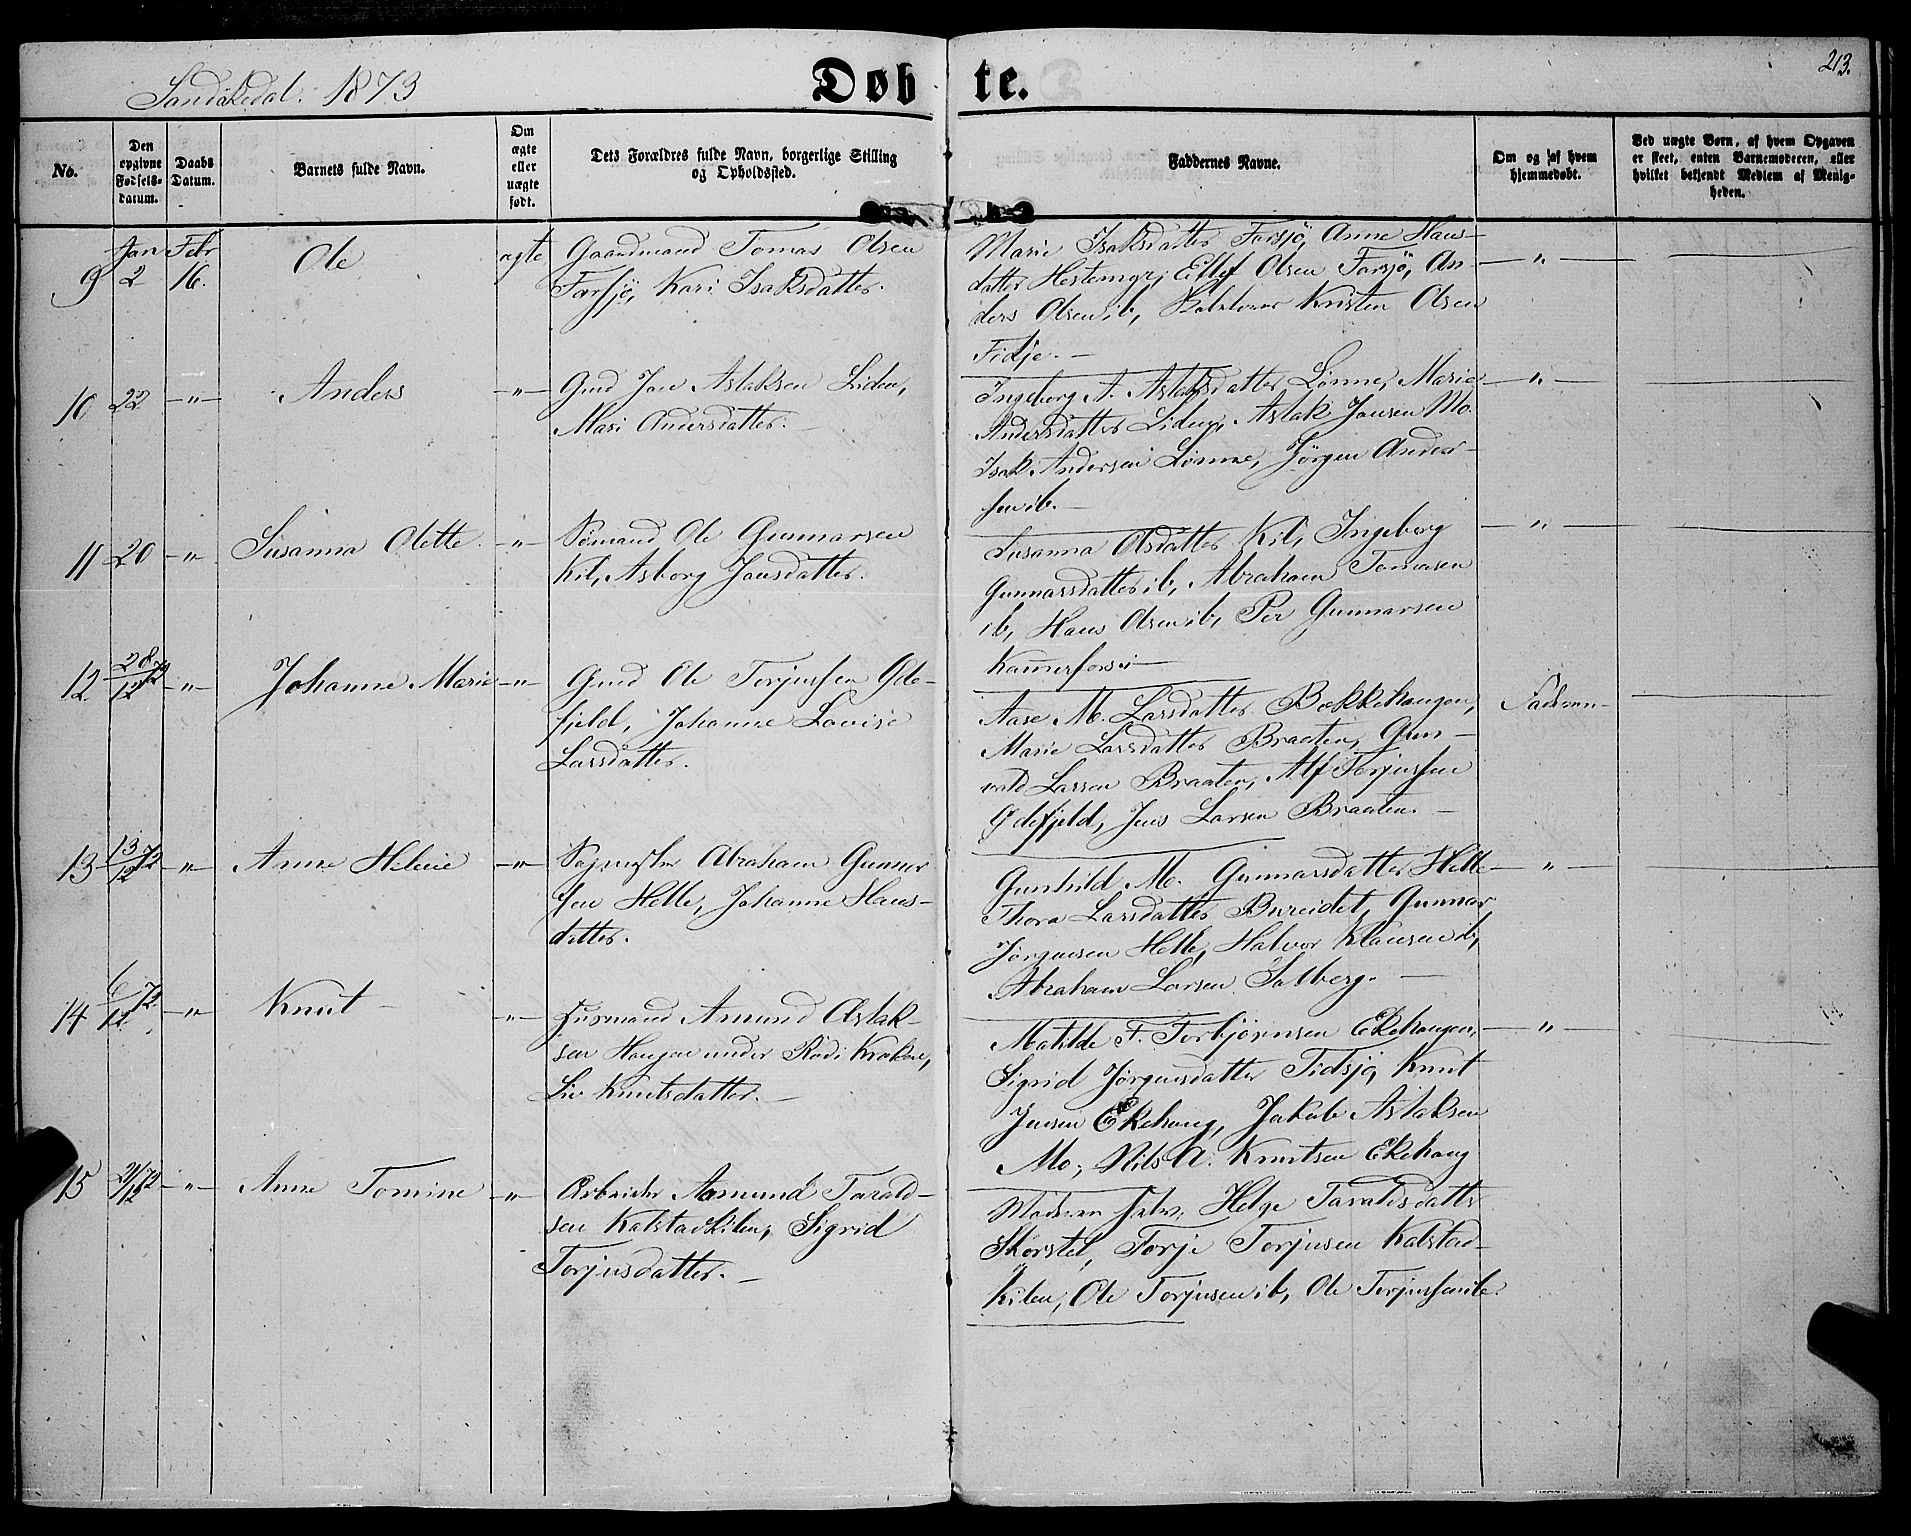 213.
Sandökedal. 1873
Døbte.
No.
Den opgivne Fødselsdatum.
Daabs Datum.
Barnets fulde Navn.
Om ægte eller uægte født.
Dets Forældres fulde Navn, borgerlige Stilling og Opholdssted.
Faddernes Navne.
Om og af hvem hjemmedøbt.
Ved uægte Børn, af hvem Opgaven er skeet, enten Barnemoderen, eller hvilket bekjendt Medlem af Menigheden.
9 Jan 2 Febr 16. Ole ægte
Gaardmand Tomas Olsen
Farsjø, Kari Isaksdatter.
Marie Isaksdatter Farsjø, Anne Hans-
datter Hestemyr, Ellef Olsen Farsjø, An-
ders Olsen ib, Kristen Olsen
Fidje. —
— " —
10 22 — " — Anders — " —
Gmd Jan Aslaksen Liden,
Mari Andersdatter. —
Ingeborg A. Aslaksdatter Lønne, Marie
Andersdatter Liden, Aslak Jansen Mo.
Isak Andersen Lønne, Jörgen Ander-
sen ib. —
— " —
11 20 — " — Susanna Olette. — " —
Sømand Ole Gunnarsen
Kil, Asborg Jansdatter.
Susanna Olsdatter Kil, Ingeborg
Gunnarsdatter ib, Abraham Tomasen
ib, Hans Olsen ib, Per Gunnarsen
Kammerfoss —
— " —
12 28/12 72 — " — Johanne Marie — " —
Gmd Ole Torjussen Øde-
fjeld, Johanne Lovise
Larsdatter.
Aase M. Larsdatter Bækkehaugen,
Marie Larsdatter Braaten, Gun-
vald Larsen Braaten, Alf Torjussen
Ødefjeld, Jens Larsen Braaten. —
Faderen
13 13/12 72 — " — Anne Helene — " —
Sagmester Abraham Gunnar
sen Helle, Johanne Hans-
datter.
Gunhild M. Gunnarsdatter Helle
Thora Larsdatter Bureidet, Gunnar
Jørgensen Helle, Halvor Klausen ib,
Abraham Larsen Solberg. —
— " —
14 6/12 72 — " — Knut — " —
Husmand Amund Aslak-
sen Haugen under Rödi Kroken,
Liv Knutsdatter. —
Matilde F. Torbjørnsen Ekehaugen,
Sigrid Jørgensdatter Tidsjø, Knut
Jensen Ekehaug, Jakob Aslaksen
Mo, Nils A. Knutsen Ekehaug
— " —
15 21/12 72 — " — Anne Tomine — " —
Arbeider Aamund Tarald-
sen Kalstadkilen, Sigrid
Torjusdatter. —
Moderen selv, Helge Taraldsdatter
Skorstøl, Torje Torjusen Kalstad-
kilen, Ole Torjusen ib, Ole Terjussen ib.